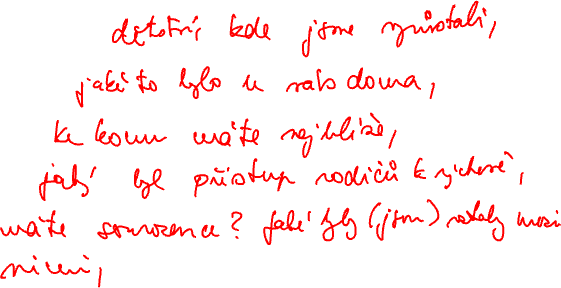 dětství, kde jsme vyrůstali,
jaké to bylo u vás doma,
ke komu máte nejblíže,
jaký byl přístup rodičů k výchově,
máte sourozence? Jaké byly (jsou) vztahy mezi
nimi,